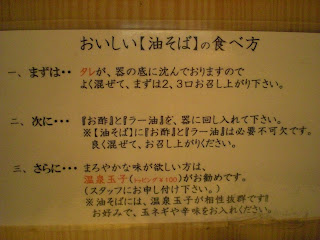 おいしい【油そば】の食べ方
一、まずは・・ タレが、器の底に沈んでおりますので
よく混ぜて、まずは2、3口お召し上がり下さい。
二、次に・・ 『お酢』と『ラー油』を、器に回し入れて下さい。
※【油そば】に『お酢』と『ラー油』は必要不可欠です。
良く混ぜて、お召し上がりください。
三、さらに・・ まろやかな味が欲しい方は、
温泉玉子(トッピング¥100)がお勧めです。
(スタッフにお申し付け下さい。)
※油そばには、温泉玉子が相性抜群です!
お好みで、玉ネギや辛味をお入れください。